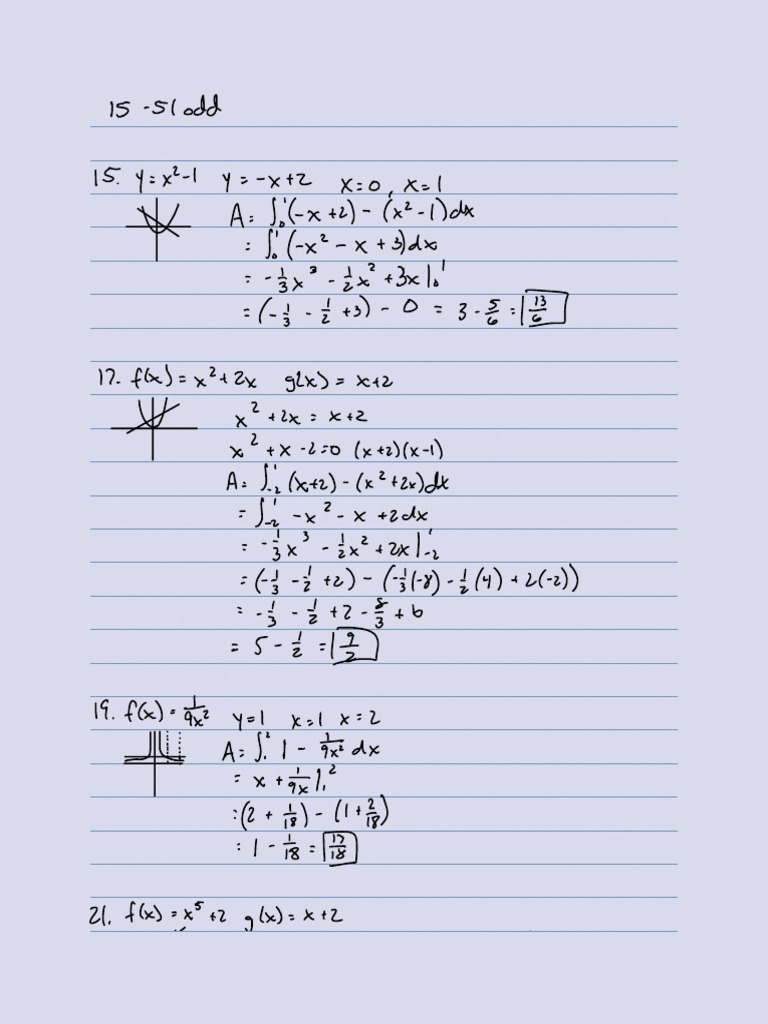 15 - 51 odd
15. y = x² - 1 y = -x + 2 x = 0, x = 1
A = ∫₀¹ (-x + 2) - (x² - 1) dx
= ∫₀¹ (-x² - x + 3) dx
= -1/3 x³ - 1/2 x² + 3x |₀¹
= (-1/3 - 1/2 + 3) - 0 = 3 - 5/6 = 13/6
17. f(x) = x² + 2x g(x) = x + 2
x² + 2x = x + 2
x² + x - 2 = 0 (x+2)(x-1)
A = ∫₋₂¹ (x+2) - (x² + 2x) dx
= ∫₋₂¹ -x² - x + 2 dx
= -1/3 x³ - 1/2 x² + 2x |₋₂¹
= (-1/3 - 1/2 + 2) - (-1/3(-8) - 1/2(4) + 2(-2))
= -1/3 - 1/2 + 2 - 8/3 + 6
= 5 - 1/2 = 9/2
19. f(x) = 1/9x² y = 1 x = 1 x = 2
A = ∫₁² 1 - 1/9x² dx
= x + 1/9x |₁²
= (2 + 1/18) - (1 + 2/18)
= 1 - 1/18 = 17/18
21. f(x) = x⁵ + 2 g(x) = x + 2